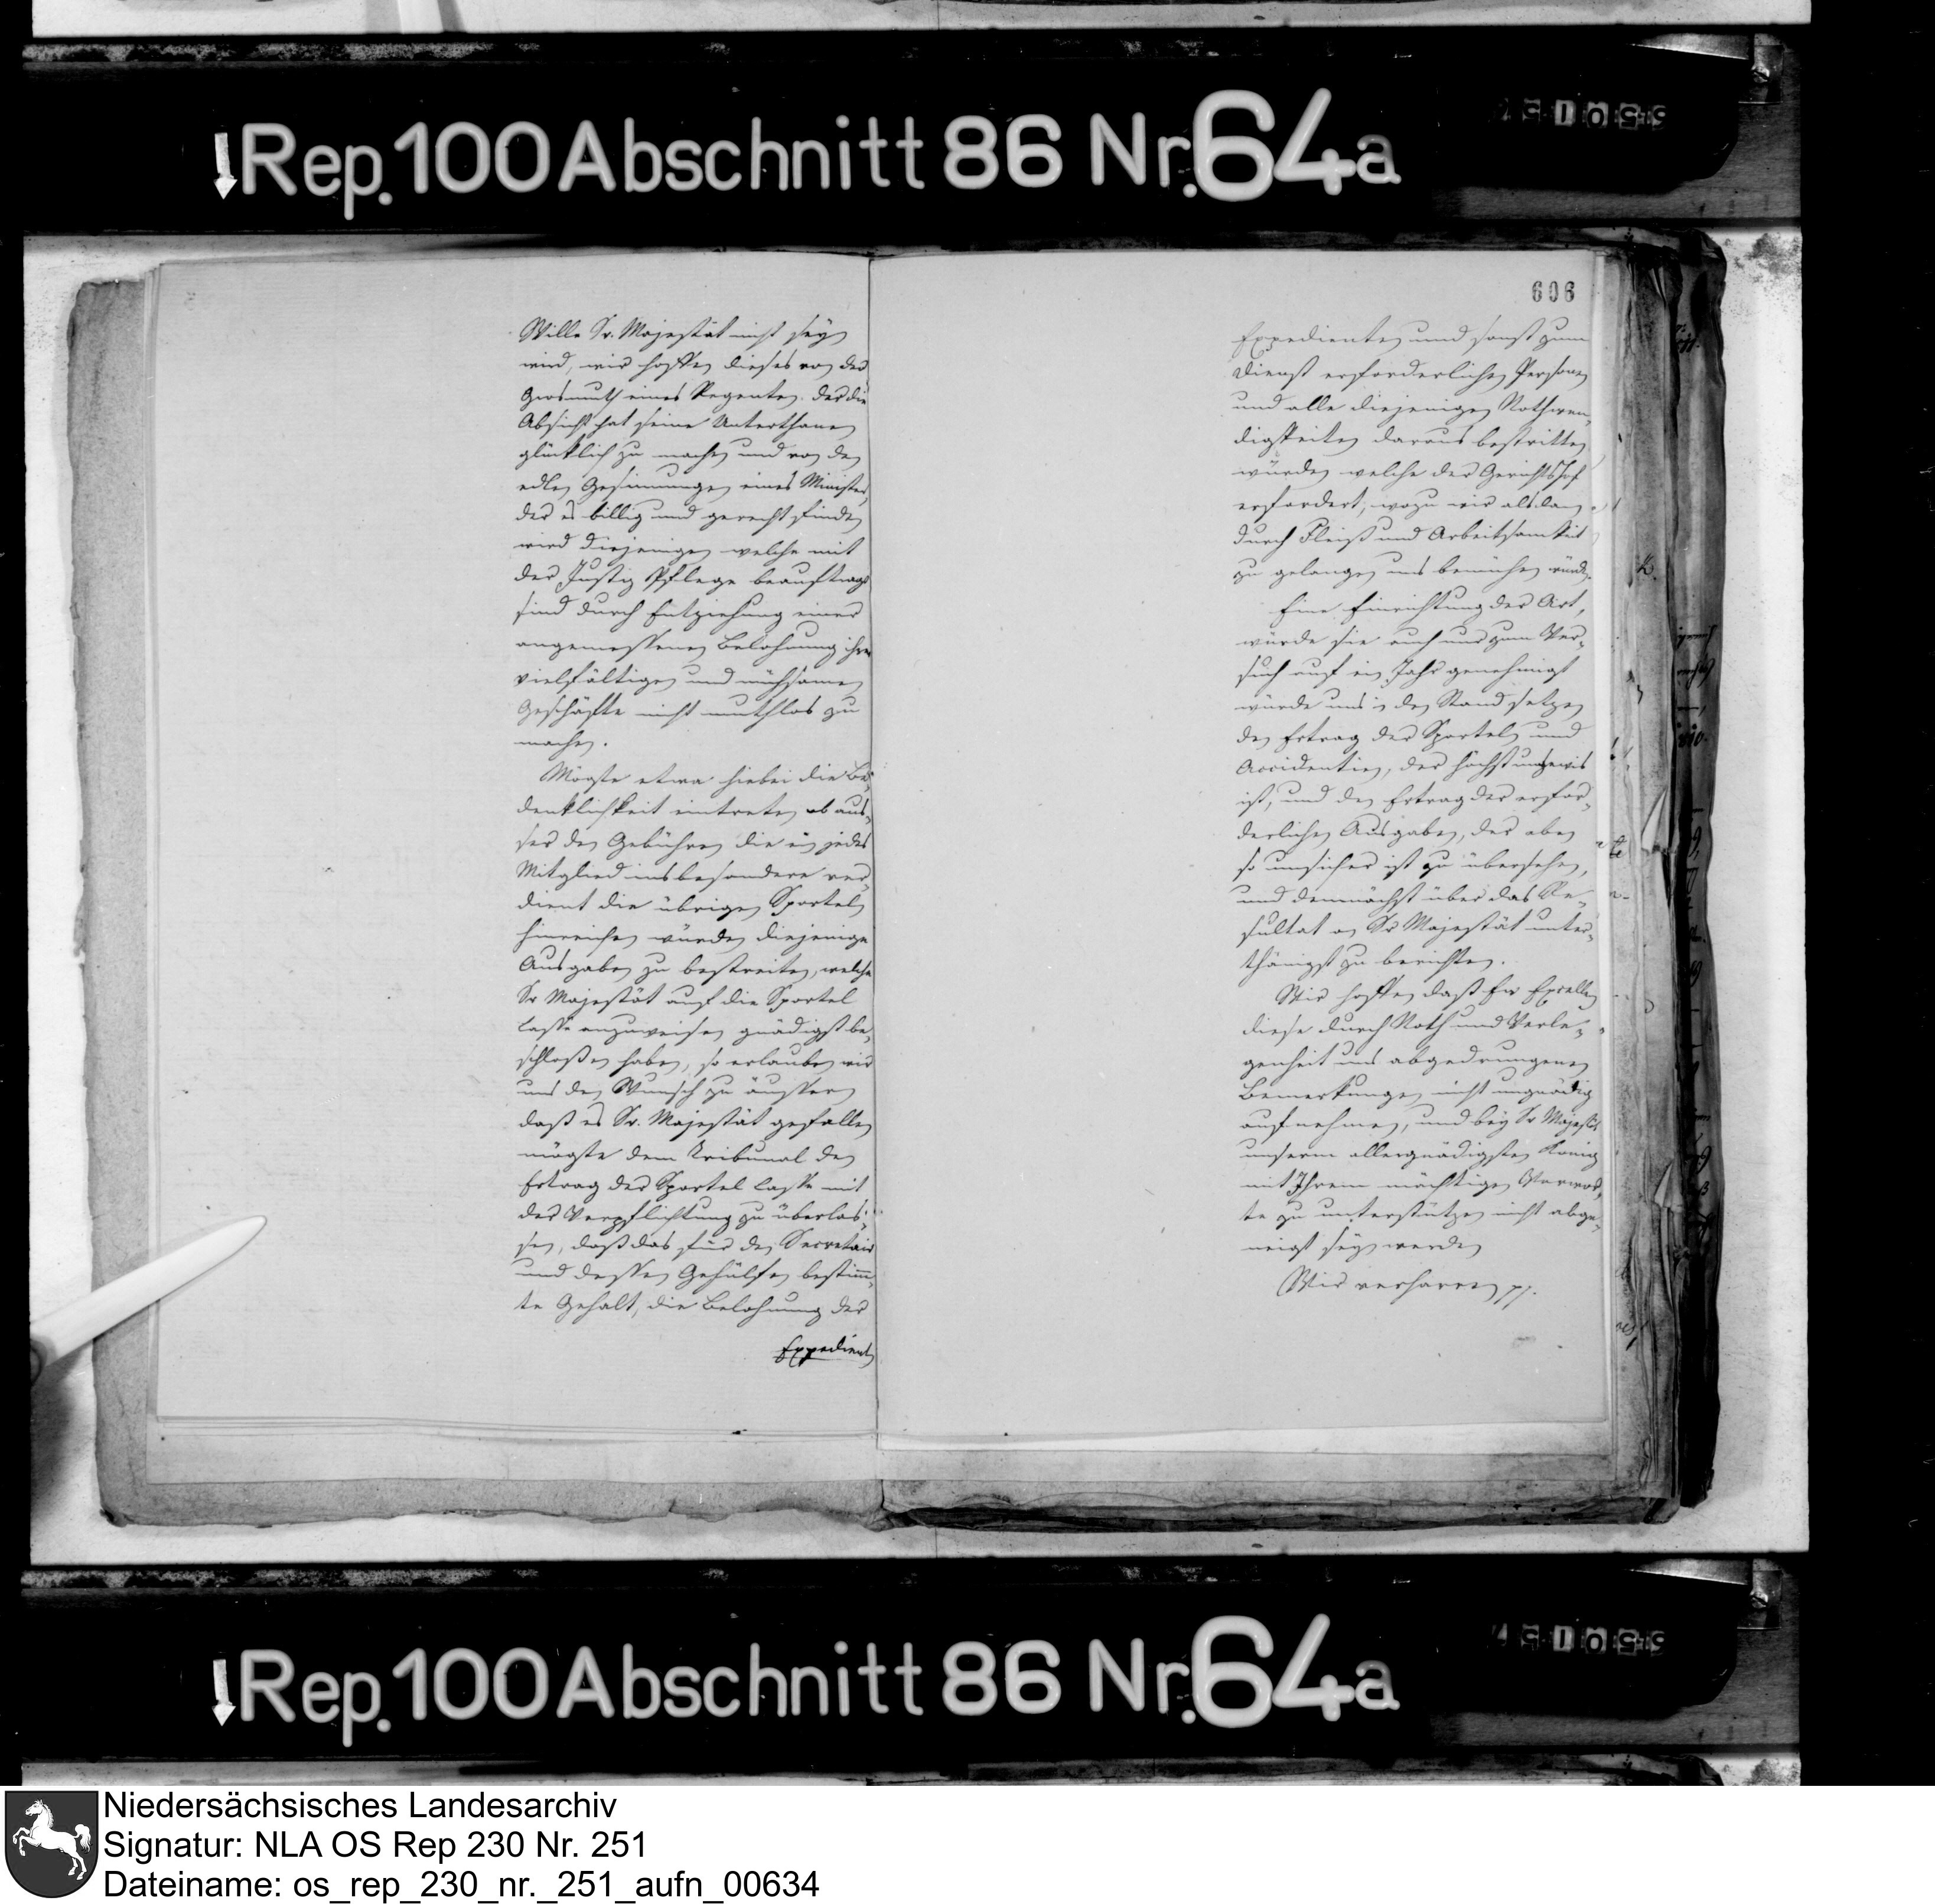 Rep. 100 Abschnitt 86 Nr. 64a
Wille Sr. Majestät nicht seyn
wird, wir hoffen dieses von der
Grosmuth eines Regenten der die
Absicht hat seine Unterthanen
glücklich zu machen und von den
edlen Gesinnungen eines Ministers,
der es billig und gerecht finden
wird diejenigen welche mit
der Justiz Pflege beauftragt
sind durch Entziehung einer
angemessenen Belohnung ihrer
vielfältigen und mühsamen
Geschäfte nicht muthlos zu
machen.
Mögte etwa hiebei die Be-
denklichkeit eintreten ob aus-
ser den Gebühren die ein jedes
Mitglied insbesondere ver-
dient die übrigen Sporteln
hinreichen würden diejenige
Ausgaben zu bestreiten, welche
Sr Majestät auf die Sportel
Casse anzuweisen gnädigst be-
schloßen haben, so erlauben wir
uns den Wunsch zu äussern
daß es Sr. Majestät gefallen
mögte dem Tribunal den
Ertrag der Sportel Casse mit
der Verpflichtung zu überlas-
sen, daß das für den Secretair
und dessen Gehülfen bestimm-
te Gehalt, die Belohnung der
Expedienten
606
Expedienten und sonst zum
Dienst erforderlichen Personen
und alle diejenigen Nothwen-
digkeiten daraus bestritten
würden welche der Gerichtshof
erfordert, wozu wir alsdann
durch Fleiß und Arbeitsamkeit
zu gelangen uns bemühen würden.
Eine Einrichtung der Art,
würde sie auch nur zum Ver-
such auf ein Jahr genehmigt
würde uns in den Stand setzen
den Ertrag der Sporteln und
Accidentien, der höchst ungewis
ist, und den Ertrag der erfor-
derlichen Ausgaben, der eben
so unsicher ist zu übersehen,
und demnächst über das Re-
sultat an Sr Majestät unter-
thänigst zu berichten.
Wir hoffen daß Ew Excellenz
diese durch Noth und Verle-
genheit uns abgedrungenen
Bemerkungen nicht ungnädig
aufnehmen, und bey Sr Majestät
unserm allergnädigsten König
mit Ihrem mächtigen Vorwor-
te zu unterstützen nicht abge-
neigt seyn werden
Wir verharren pp.
Rep. 100 Abschnitt 86 Nr. 64a
Niedersächsisches Landesarchiv
Signatur: NLA OS Rep 230 Nr. 251
Dateiname: os_rep_230_nr._251_aufn_00634